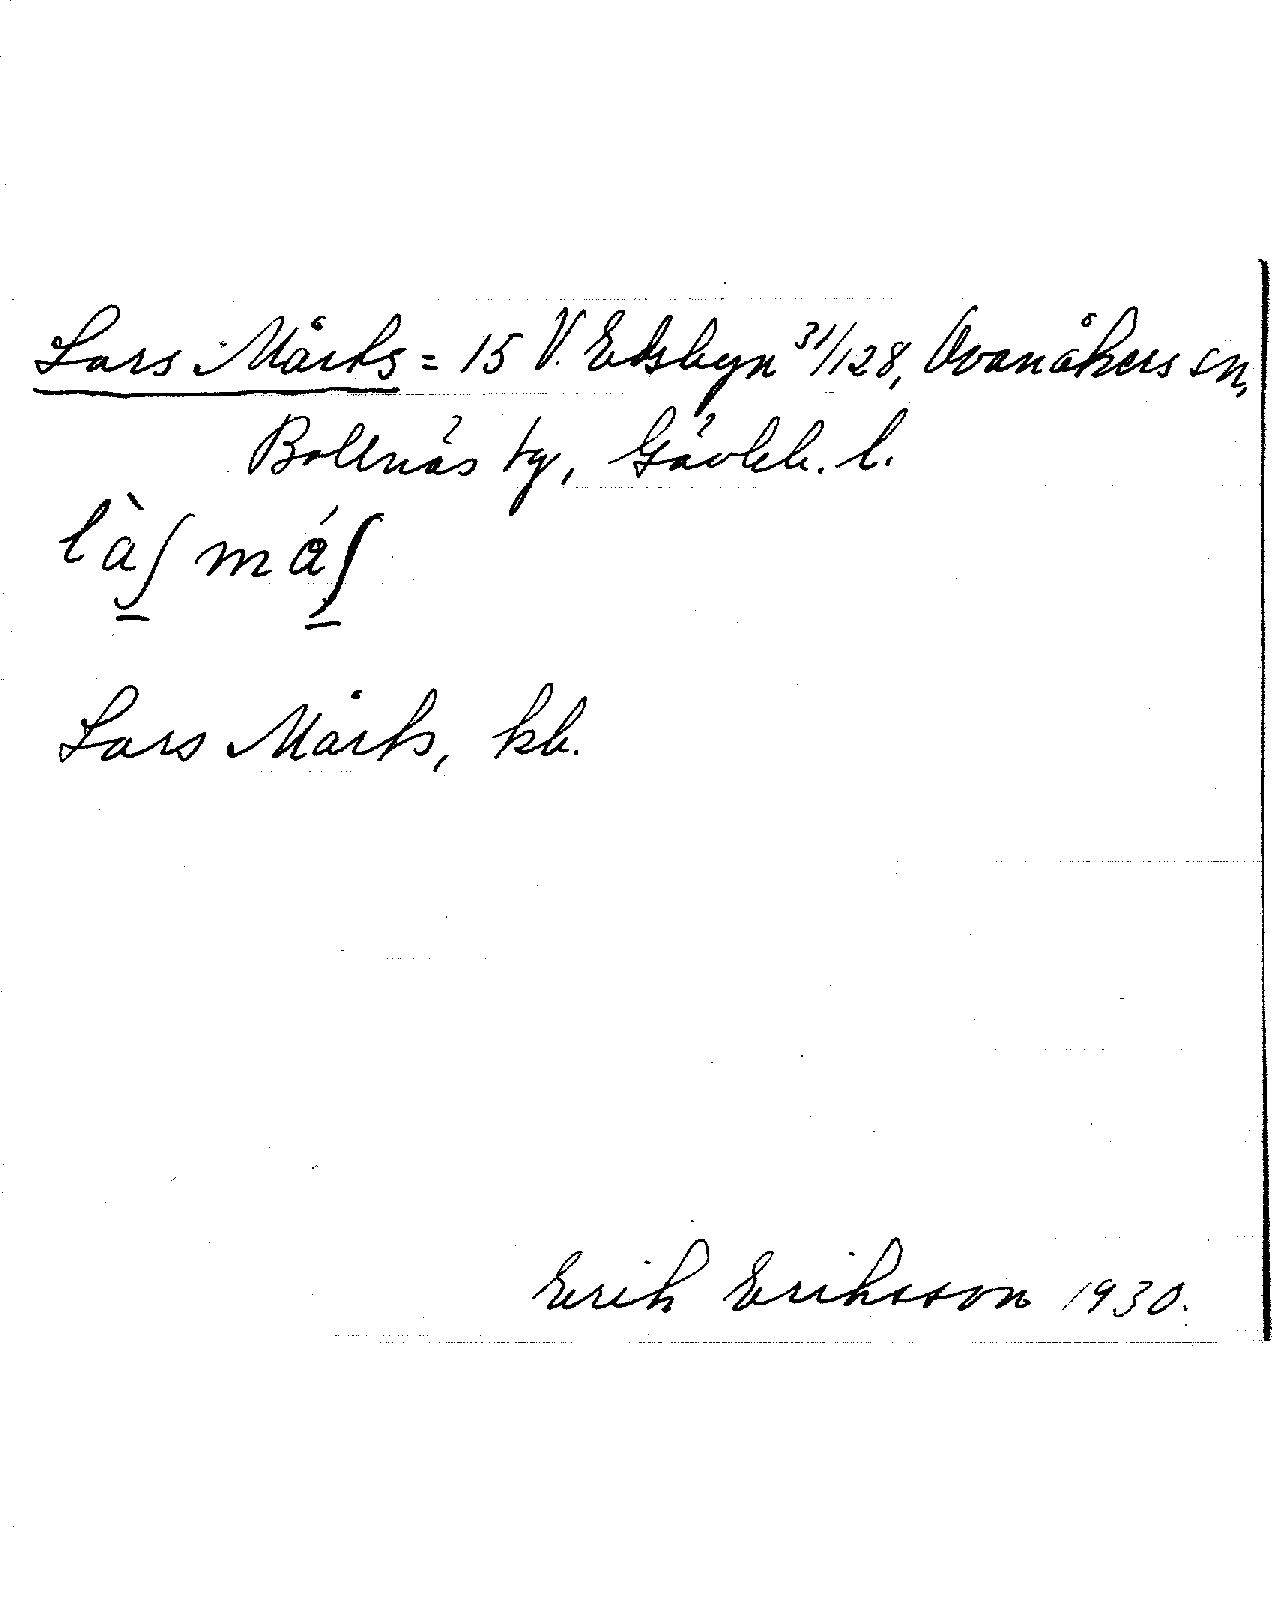 Lars Mårts = 15 V. Edsbyn 31/128, Ovanåkers sn,
Bollnäs tg, Gävleb. l.
là∫ mǻ∫
Lars Mårts, kb.
Erik Eriksson 1930.